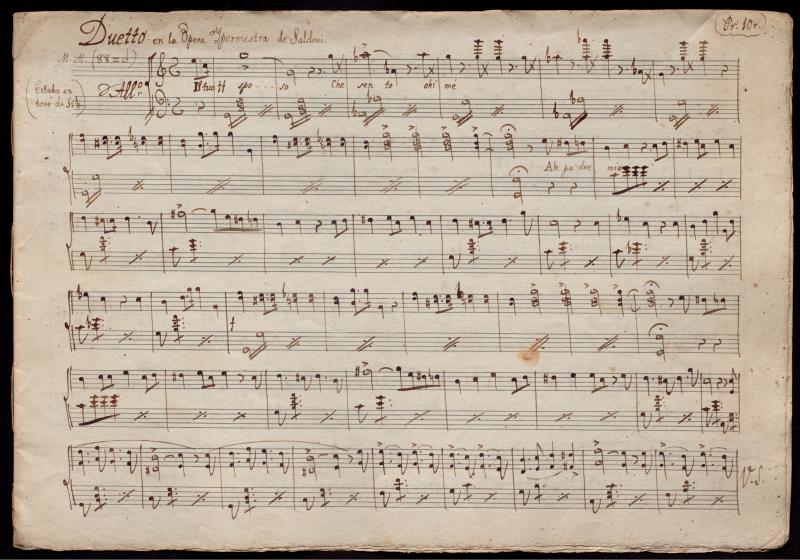 Duetto en la Opera Ypermestra de Saldoni.
(Pr: 10r.)
M. M. (88=
(Estaba en
tono de Sib)
All.º
Il tuo spo...so Che sen to ohi me
Ah pa dre mio
V. S.